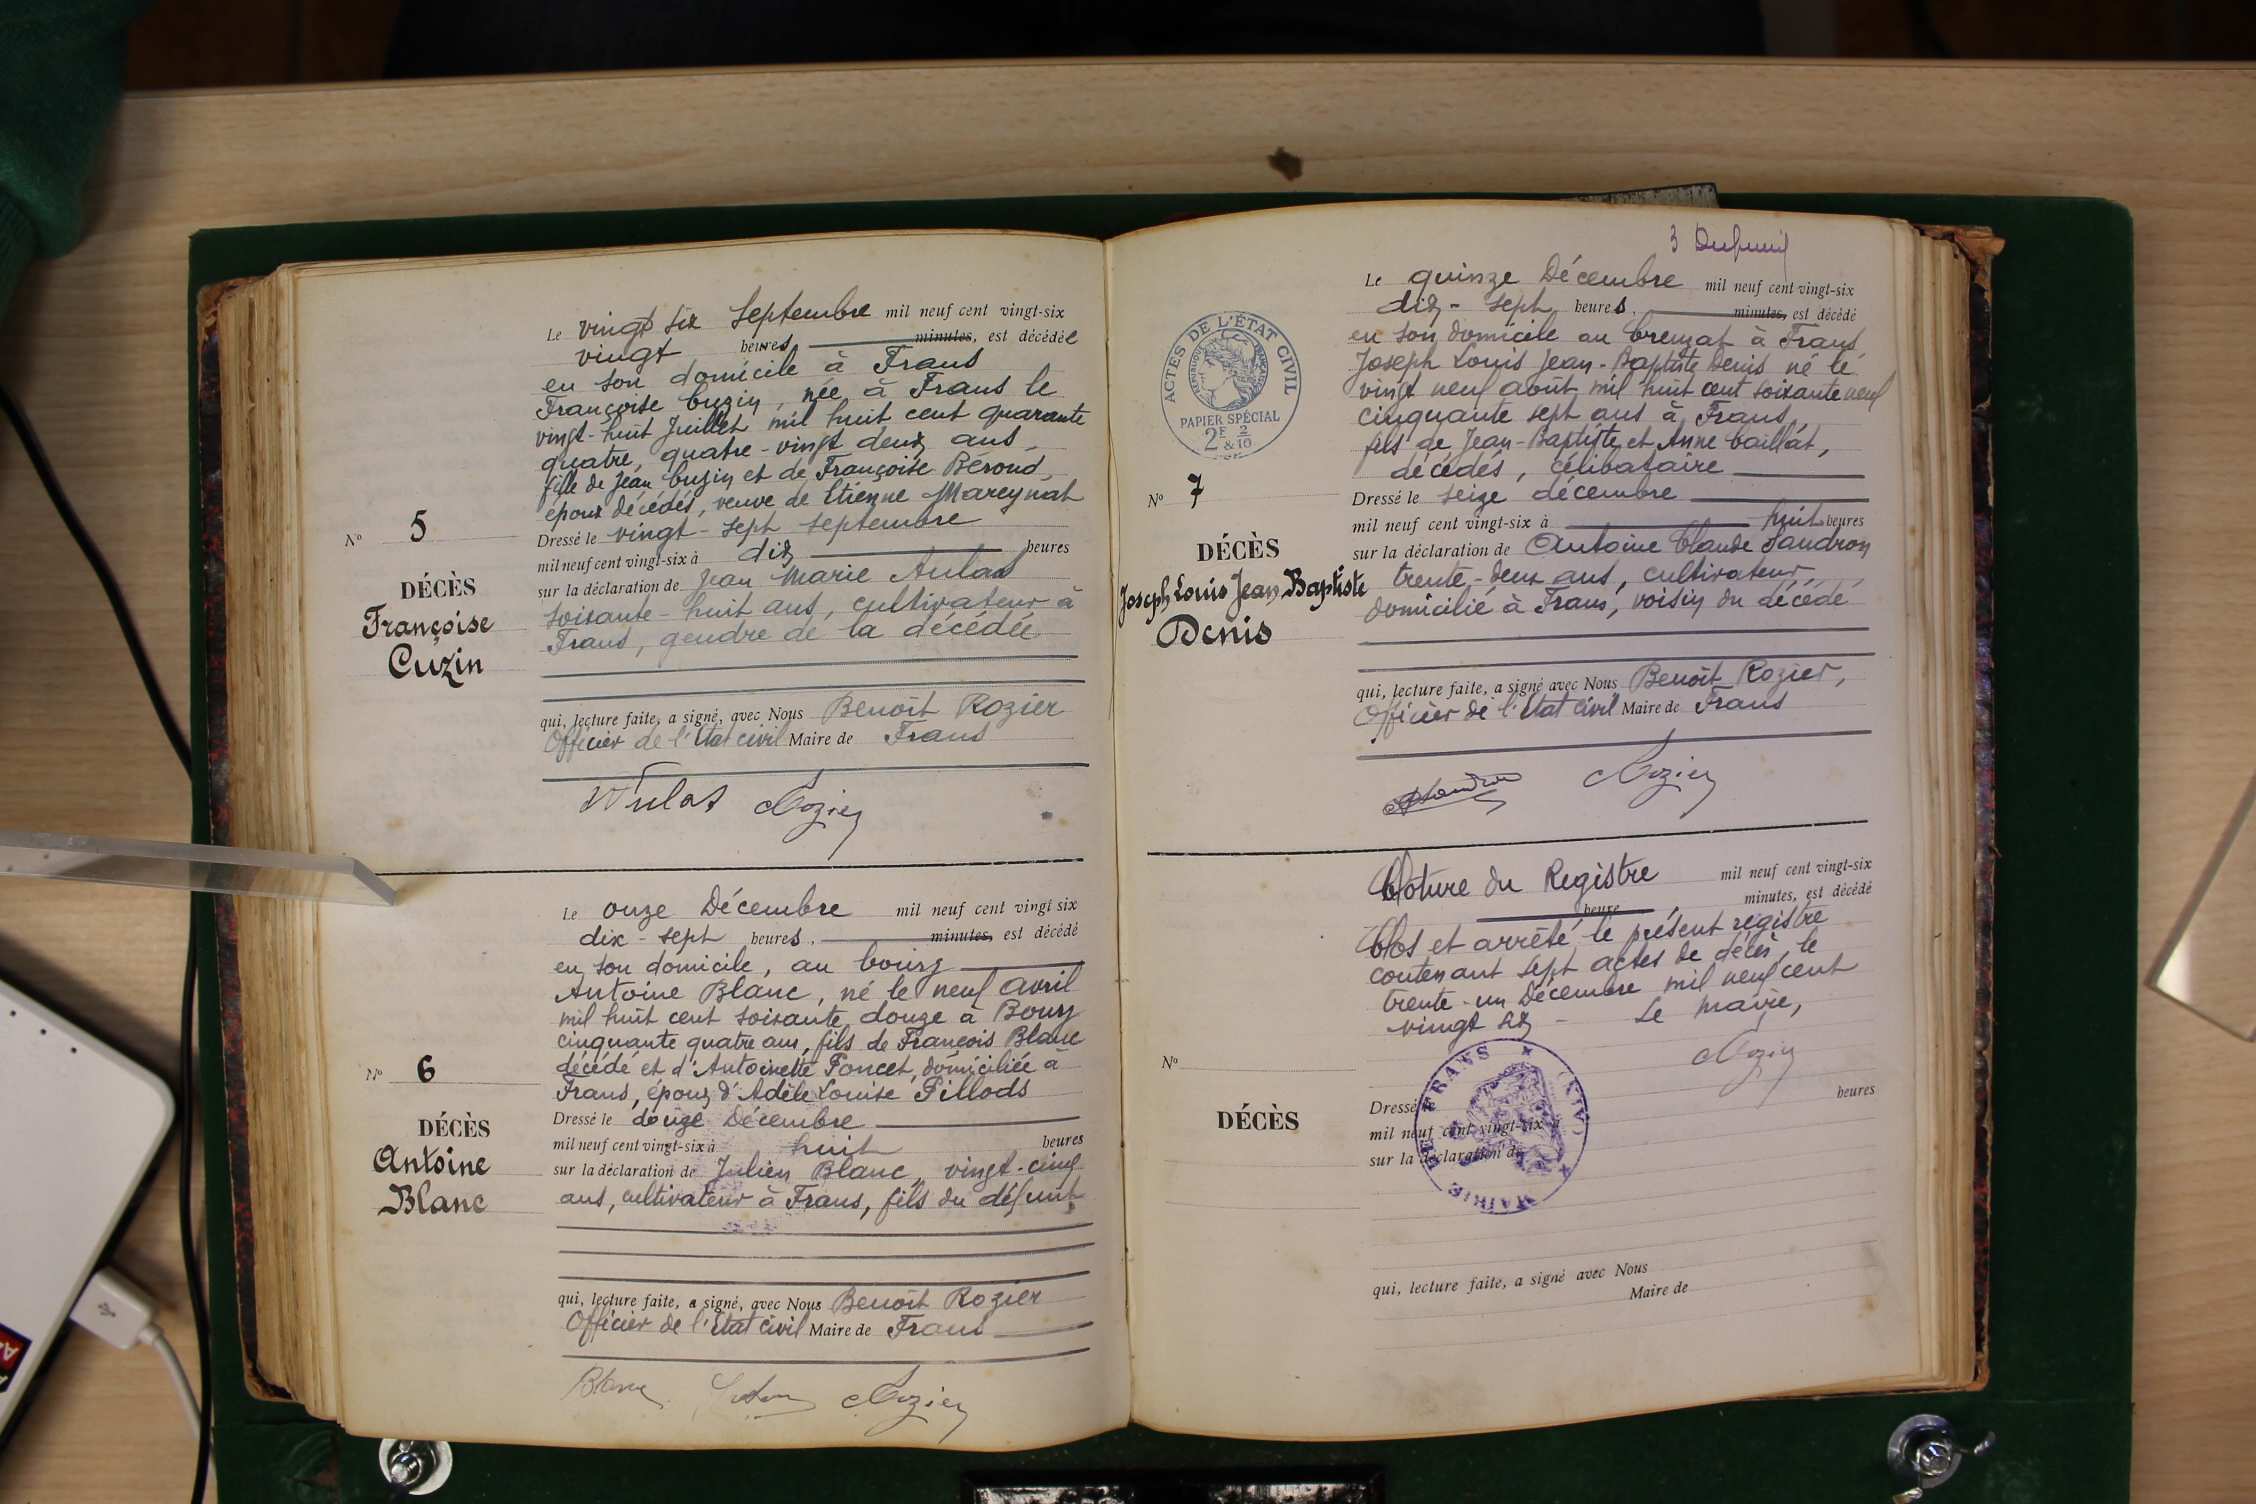 Le vingt six Septembre mil neuf cent vingt-six
vingt heures minutes, est décédée
en son domicile à Frans
Françoise Cuzin, née à Frans le
vingt-huit Juillet mil huit cent quarante
quatre, quatre-vingt deux ans
fille de Jean Cuzin et de Françoise Béroud,
époux décédés, veuve de Etienne Mareynat
N° 5
Dressé le vingt-sept septembre
mil neuf cent vingt-six à dix heures
DÉCÈS
sur la déclaration de Jean Marie Aulas
Françoise
soixante-huit ans, cultivateur à
Cuzin
Frans, gendre de la décédée
qui, lecture faite, a signé, avec Nous Benoît Rozier
Officier de l'Etat civil Maire de Frans
Aulas Rozier
Le onze Décembre mil neuf cent vingt six
dix-sept heures, minutes, est décédé
en son domicile, au bourg
Antoine Blanc, né le neuf avril
mil huit cent soixante douze à Bouy
cinquante quatre ans, fils de François Blanc
décédé et d'Antoinette Poncet, domiciliée à
N° 6
Frans, époux d'Adèle Louise Pillods
Dressé le douze Décembre
DÉCÈS
mil neuf cent vingt-six à huit heures
Antoine
sur la déclaration de Julien Blanc, vingt-cinq
Blanc
ans, cultivateur à Frans, fils du défunt
qui, lecture faite, a signé, avec Nous Benoît Rozier
Officier de l'Etat civil Maire de Frans
Blanc Rozier
3
ACTES DE L'ÉTAT CIVIL
RÉPUBLIQUE FRANÇAISE
PAPIER SPÉCIAL
2F & 2/10
Le quinze Décembre mil neuf cent vingt-six
dix-sept heures, minutes, est décédé
en son domicile au Creuzat à Frans
Joseph Louis Jean-Baptiste Denis né le
vingt neuf août mil huit cent soixante neuf
cinquante sept ans à Frans,
fils de Jean-Baptiste et Anne Caillat,
décédés, célibataire
N° 7
Dressé le seize décembre
mil neuf cent vingt-six à huit heures
DÉCÈS
sur la déclaration de Antoine Claude Sandron
Joseph Louis Jean Baptiste
trente-deux ans, cultivateur
Denis
domicilié à Frans, voisin du décédé
qui, lecture faite, a signé avec Nous Benoît Rozier,
Officier de l'Etat civil Maire de Frans
Sandron Rozier
Cloture du Registre mil neuf cent vingt-six
heure, minutes, est décédé
Clos et arrêté le présent registre
contenant sept actes de décès, le
trente-un Décembre mil neuf cent
vingt six - Le Maire,
Rozier
N°
MAIRIE DE FRANS (AIN)
Dressé le heures
DÉCÈS
mil neuf cent vingt-six à
sur la déclaration de
qui, lecture faite, a signé avec Nous
Maire de